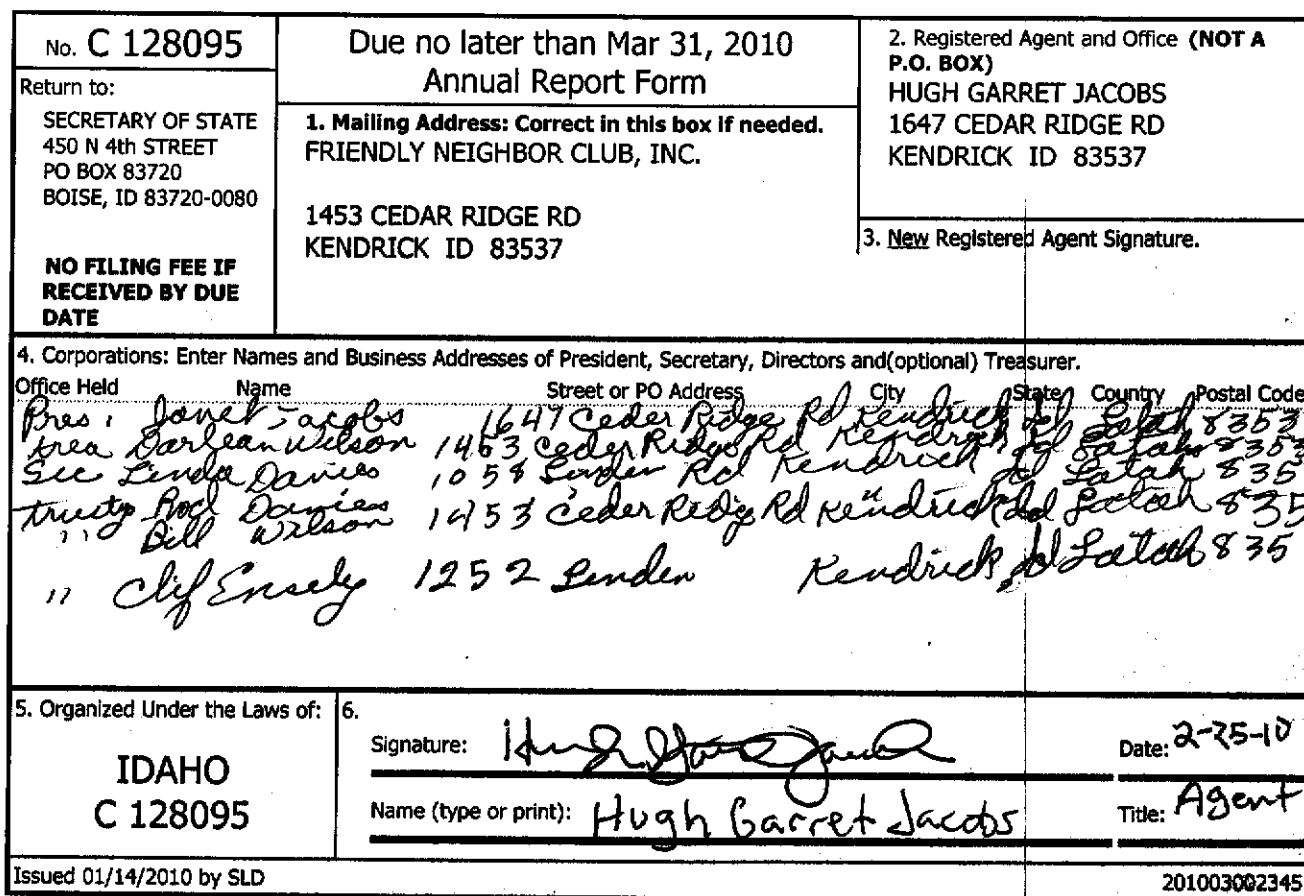 No. C 128095
Return to:
SECRETARY OF STATE
450 N 4th STREET
PO BOX 83720
BOISE, ID 83720-0080
NO FILING FEE IF
RECEIVED BY DUE
DATE
Due no later than Mar 31, 2010
Annual Report Form
1. Mailing Address: Correct in this box if needed.
FRIENDLY NEIGHBOR CLUB, INC.
1453 CEDAR RIDGE RD
KENDRICK ID 83537
2. Registered Agent and Office (NOT A
P.O. BOX)
HUGH GARRET JACOBS
1647 CEDAR RIDGE RD
KENDRICK ID 83537
3. New Registered Agent Signature.
4. Corporations: Enter Names and Business Addresses of President, Secretary, Directors and(optional) Treasurer.
Office Held Name Street or PO Address City State Country Postal Code
Pres. Janet Jacobs 1647 Ceder Ridge Rd Kendrick Id Latah 8353
trea Darlean Wilson 1453 Ceder Ridge Rd Kendrick Id Latah 8353
Sec Linda Davies 1058 Linden Rd Kendrick Id Latah 835
trusty Rod Davies " "
" Bill Wilson 1453 Ceder Redig Rd Kendrick Id Latah 835
" Clif Ensely 1252 Linden Kendrick Id Latah 835
5. Organized Under the Laws of:
IDAHO
C 128095
6.
Signature: Hugh Garret Jacobs
Date: 2-25-10
Name (type or print): Hugh Garret Jacobs
Title: Agent
Issued 01/14/2010 by SLD
201003002345